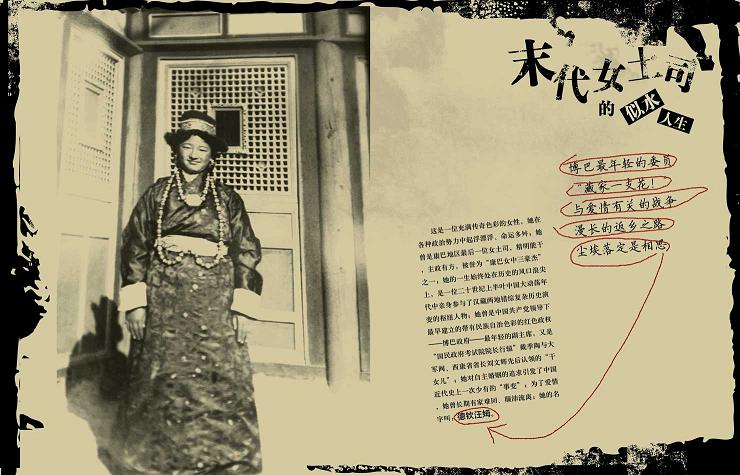 末代女士司
的似水人生
博巴最年轻的委员
“藏家一支花!
与爱情有关的战争
漫长的返乡之路
尘埃落定是相思
这是一位充满传奇色彩的女性，她在
各种政治势力中起浮漂浮、命运多舛；她
曾是康巴地区最后一位女土司，精明能干
、主政有方，被誉为“康巴女中三豪杰”
之一；她的一生始终处在历史的风口浪尖
上，是一位二十世纪上半叶中国大动荡年
代中亲身参与了汉藏两地错综复杂历史演
变的枢纽人物；她曾是中国共产党领导下
最早建立的带有民族自治色彩的红色政权
——博巴政府——最年轻的副主席，又是
“国民政府考试院院长行辕”戴季陶与大
军阀、西康省省长刘文辉先后认领的“干
女儿”；她对自主婚姻的追求引发了中国
近代史上一次少有的“事变”；为了爱情
，她曾长期有家难回、颠沛流离；她的名
字叫：德钦汪姆。